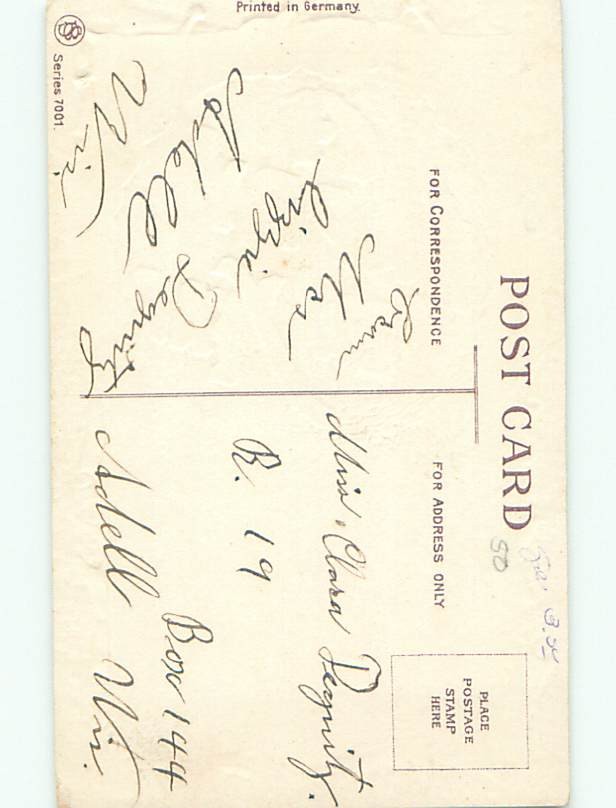 POST CARD
FOR CORRESPONDENCE
FOR ADDRESS ONLY
PLACE
POSTAGE
STAMP
HERE
50
From
Lizzie
Adell
Wis.
Miss. Clara Degnitz.
R. 19
Box 144
Adell Wis.
Series 7001.
Printed in Germany.